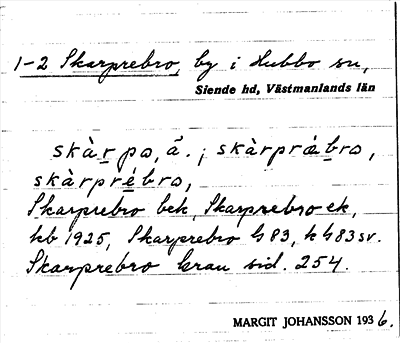 1-2 Skarprebro, by i Hubbo sn,
Siende hd, Västmanlands län
skàrpa, ä. ; skàrpràbro,
skàrprèbro,
Skarprebro bek, Skarprebro ek,
kb 1925, Skarprebro G 83, k G 83 sv.
Skarprebro Grau sid. 254.
MARGIT JOHANSSON 1936.